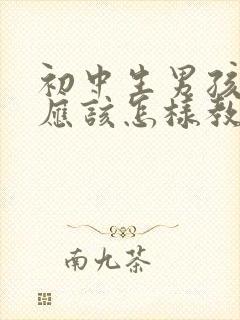 初中生男孩
应该怎样教
南九茶